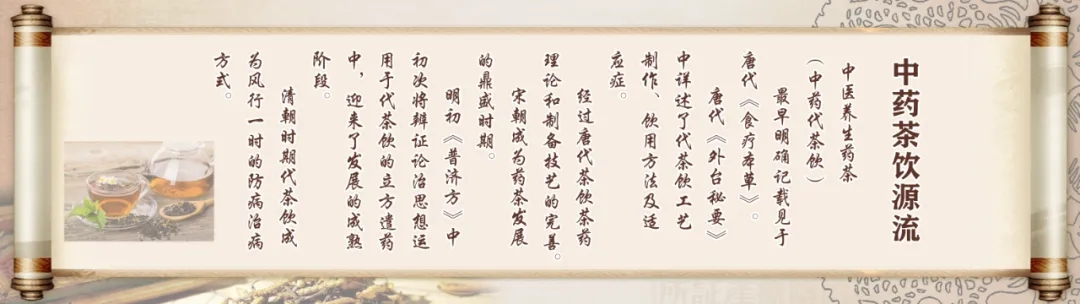 中药茶饮源流
中医养生药茶
（中药代茶饮）
最早明确记载见于
唐代《食疗本草》。
唐代《外台秘要》
中详述了代茶饮工艺
制作、饮用方法及适
应症。
经过唐代茶饮茶药
理论和制备技艺的完善。
宋朝成为药茶发展
的鼎盛时期。
明初《普济方》中
初次将辨证论治思想运
用于代茶饮的立方遣药
中，迎来了发展的成熟
阶段。
清朝时期代茶饮成
为风行一时的防病治病
方式。